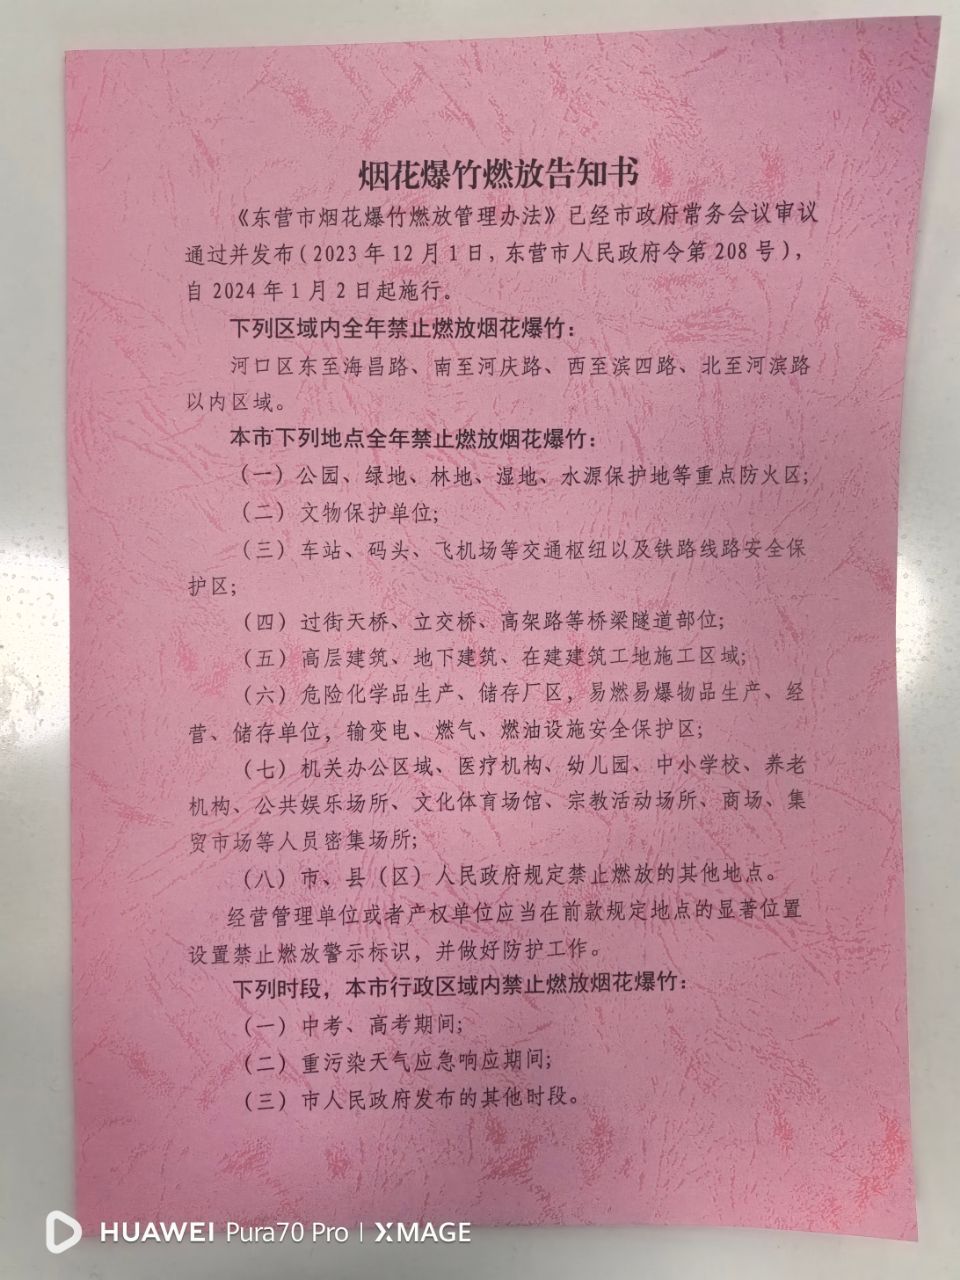 烟花爆竹燃放告知书
《东营市烟花爆竹燃放管理办法》已经市政府常务会议审议
通过并发布（2023年12月1日，东营市人民政府令第208号），
自2024年1月2日起施行。
下列区域内全年禁止燃放烟花爆竹：
河口区东至海昌路、南至河庆路、西至滨四路、北至河滨路
以内区域。
本市下列地点全年禁止燃放烟花爆竹：
（一）公园、绿地、林地、湿地、水源保护地等重点防火区；
（二）文物保护单位；
（三）车站、码头、飞机场等交通枢纽以及铁路线路安全保
护区；
（四）过街天桥、立交桥、高架路等桥梁隧道部位；
（五）高层建筑、地下建筑、在建建筑工地施工区域；
（六）危险化学品生产、储存厂区，易燃易爆物品生产、经
营、储存单位，输变电、燃气、燃油设施安全保护区；
（七）机关办公区域、医疗机构、幼儿园、中小学校、养老
机构、公共娱乐场所、文化体育场馆、宗教活动场所、商场、集
贸市场等人员密集场所；
（八）市、县（区）人民政府规定禁止燃放的其他地点。
经营管理单位或者产权单位应当在前款规定地点的显著位置
设置禁止燃放警示标识，并做好防护工作。
下列时段，本市行政区域内禁止燃放烟花爆竹：
（一）中考、高考期间；
（二）重污染天气应急响应期间；
（三）市人民政府发布的其他时段。
HUAWEI Pura70 Pro | XMAGE